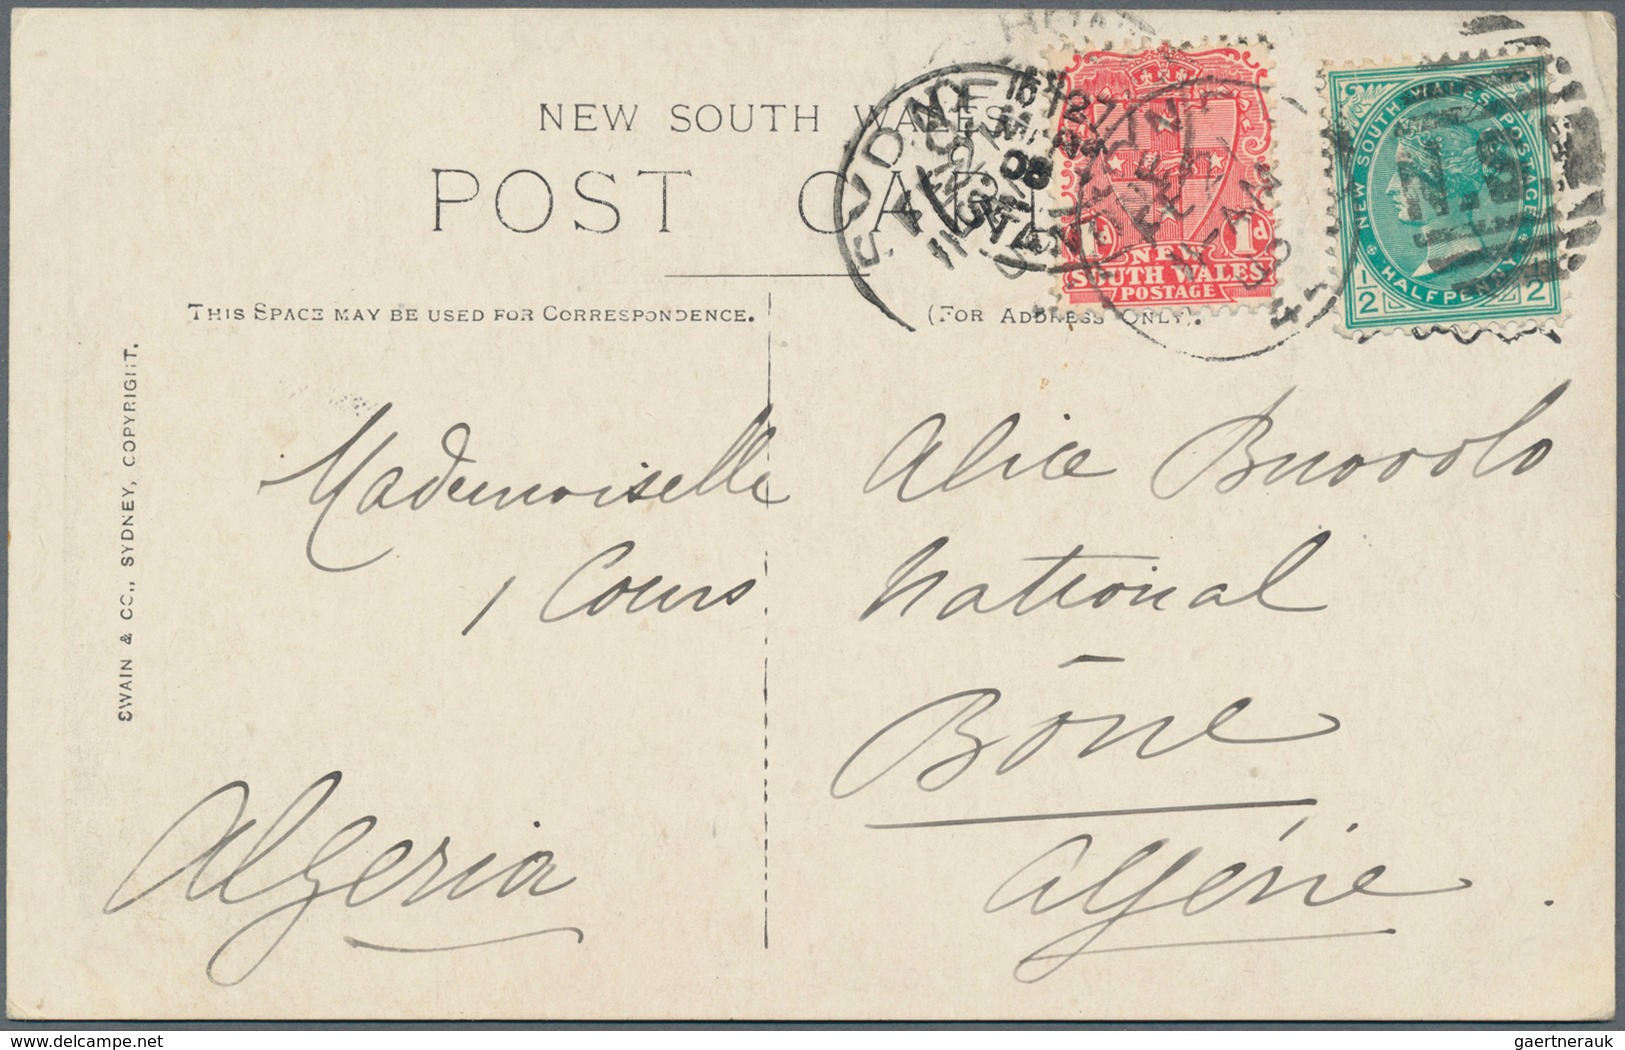 NEW SOUTH WALES
POST CARD
THIS SPACE MAY BE USED FOR CORRESPONDENCE.
(FOR ADDRESS ONLY).
SWAIN & CO., SYDNEY, COPYRIGHT.
SYDNEY
1d 1d
NEW
SOUTH WALES
POSTAGE
NEW SOUTH WALES POSTAGE
HALFPENNY
1/2 1/2
N.S.W
Mademoiselle Alice Buovolo
1 Cours National
Bône
Algeria Algérie.
www.delcampe.net
gaertnerauk